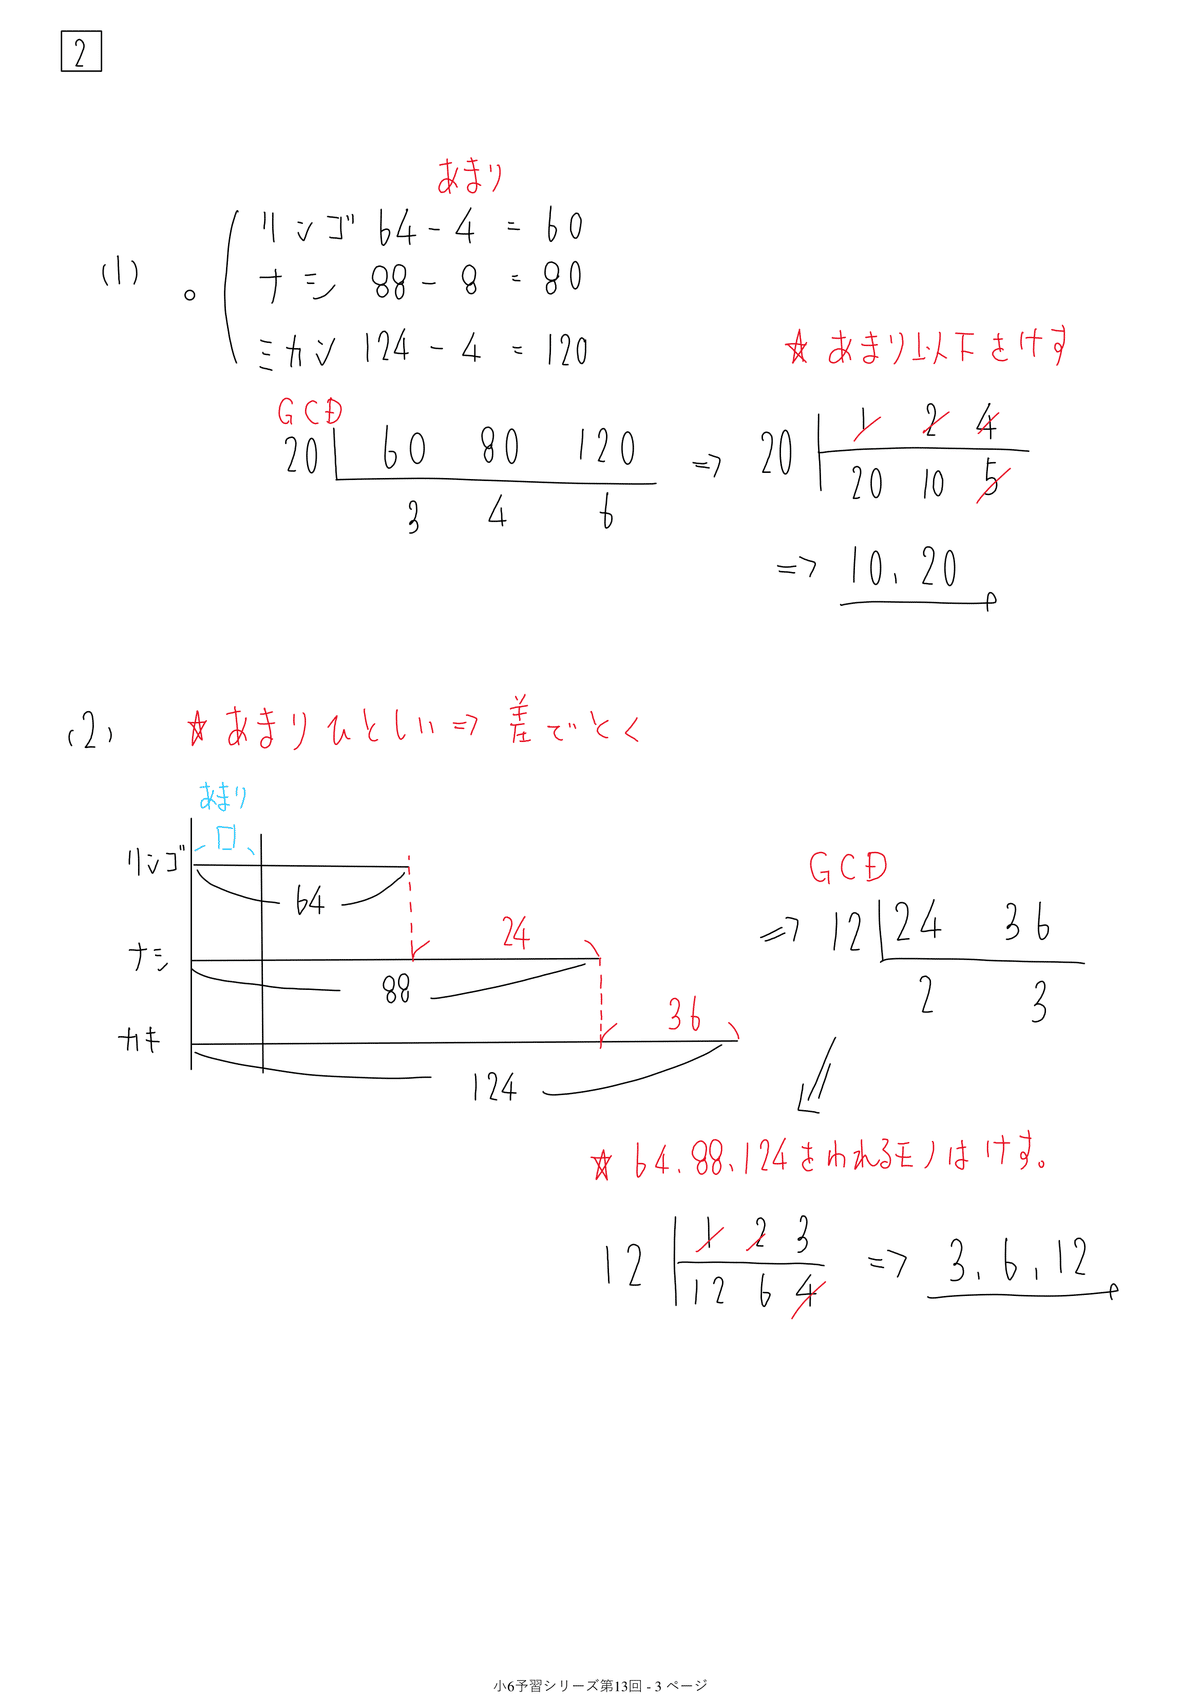 2
あまり
(1)
リンゴ 64 - 4 = 60
ナシ 88 - 8 = 80
ミカン 124 - 4 = 120
☆ あまり以下をけす
GCD
20 60 80 120
3 4 6
⇒ 20 1 2 4
20 10 5
⇒ 10, 20
(2) ☆ あまりひとしい ⇒ 差でとく
あまり
□
リンゴ
64
ナシ
24
88
カキ
36
124
GCD
⇒ 12 24 36
2 3
☆ 64, 88, 124をわれるモノはけす。
12 1 2 3
12 6 4
⇒ 3, 6, 12
小6予習シリーズ第13回 - 3 ページ